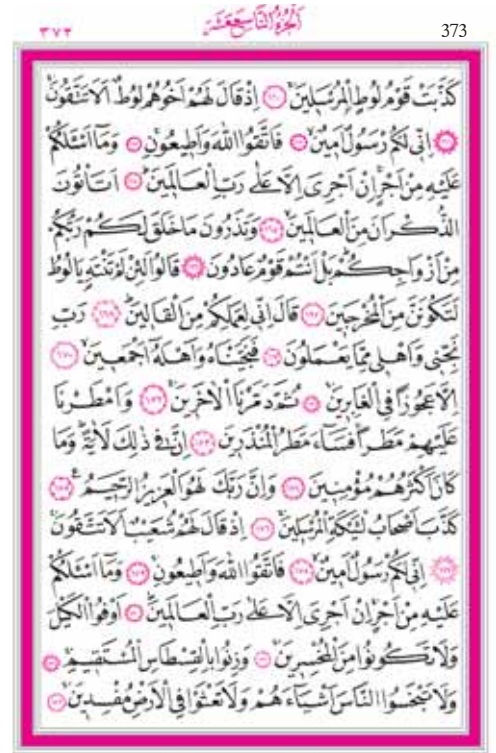 ٣٧٣ اَلْجُزْءُ التَّاسِعَ عَشَرَ 373
كَذَّبَتْ قَوْمُ لُوطٍ اِۨلْمُرْسَلٖينَۚ ﴿١٦٠﴾ اِذْ قَالَ لَهُمْ اَخُوهُمْ لُوطٌ اَلَا تَتَّقُونَۚ
﴿١٦١﴾ اِنّٖى لَكُمْ رَسُولٌ اَمٖينٌۙ ﴿١٦٢﴾ فَاتَّقُوا اللّٰهَ وَاَطٖيعُونِۚ ﴿١٦٣﴾ وَمَٓا اَسْـَٔلُكُمْ
عَلَيْهِ مِنْ اَجْرٍۚ اِنْ اَجْرِىَ اِلَّا عَلٰى رَبِّ الْعَالَمٖينَۜ ﴿١٦٤﴾ اَتَاْتُونَ
الذُّكْرَانَ مِنَ الْعَالَمٖينَۙ ﴿١٦٥﴾ وَتَذَرُونَ مَا خَلَقَ لَكُمْ رَبُّكُمْ
مِنْ اَزْوَاجِكُمْۜ بَلْ اَنْتُمْ قَوْمٌ عَادُونَ ﴿١٦٦﴾ قَالُوا لَئِنْ لَمْ تَنْتَهِ يَا لُوطُ
لَتَكُونَنَّ مِنَ الْمُخْرَجٖينَ ﴿١٦٧﴾ قَالَ اِنّٖى لِعَمَلِكُمْ مِنَ الْقَالٖينَۜ ﴿١٦٨﴾ رَبِّ
نَجِّنٖى وَاَهْلٖى مِمَّا يَعْمَلُونَ ﴿١٦٩﴾ فَنَجَّيْنَاهُ وَاَهْلَهُٓ اَجْمَعٖينَۙ ﴿١٧٠﴾
اِلَّا عَجُوزًا فِى الْغَابِرٖينَۚ ﴿١٧١﴾ ثُمَّ دَمَّرْنَا الْاٰخَرٖينَۚ ﴿١٧٢﴾ وَاَمْطَرْنَا
عَلَيْهِمْ مَطَرًاۚ فَسَٓاءَ مَطَرُ الْمُنْذَرٖينَ ﴿١٧٣﴾ اِنَّ فٖى ذٰلِكَ لَاٰيَةًۜ وَمَا
كَانَ اَكْثَرُهُمْ مُؤْمِنٖينَ ﴿١٧٤﴾ وَاِنَّ رَبَّكَ لَهُوَ الْعَزٖيزُ الرَّحٖيمُ ﴿١٧٥﴾
كَذَّبَ اَصْحَابُ لْـَٔيْكَةِ الْمُرْسَلٖينَۚ ﴿١٧٦﴾ اِذْ قَالَ لَهُمْ شُعَيْبٌ اَلَا تَتَّقُونَۚ
﴿١٧٧﴾ اِنّٖى لَكُمْ رَسُولٌ اَمٖينٌۙ ﴿١٧٨﴾ فَاتَّقُوا اللّٰهَ وَاَطٖيعُونِۚ ﴿١٧٩﴾ وَمَٓا اَسْـَٔلُكُمْ
عَلَيْهِ مِنْ اَجْرٍۚ اِنْ اَجْرِىَ اِلَّا عَلٰى رَبِّ الْعَالَمٖينَۜ ﴿١٨٠﴾ اَوْفُوا الْكَيْلَ
وَلَا تَكُونُوا مِنَ الْمُخْسِرٖينَۚ ﴿١٨١﴾ وَزِنُوا بِالْقِسْطَاسِ الْمُسْتَقٖيمِۚ ﴿١٨٢﴾
وَلَا تَبْخَسُوا النَّاسَ اَشْيَٓاءَهُمْ وَلَا تَعْثَوْا فِى الْاَرْضِ مُفْسِدٖينَۚ ﴿١٨٣﴾